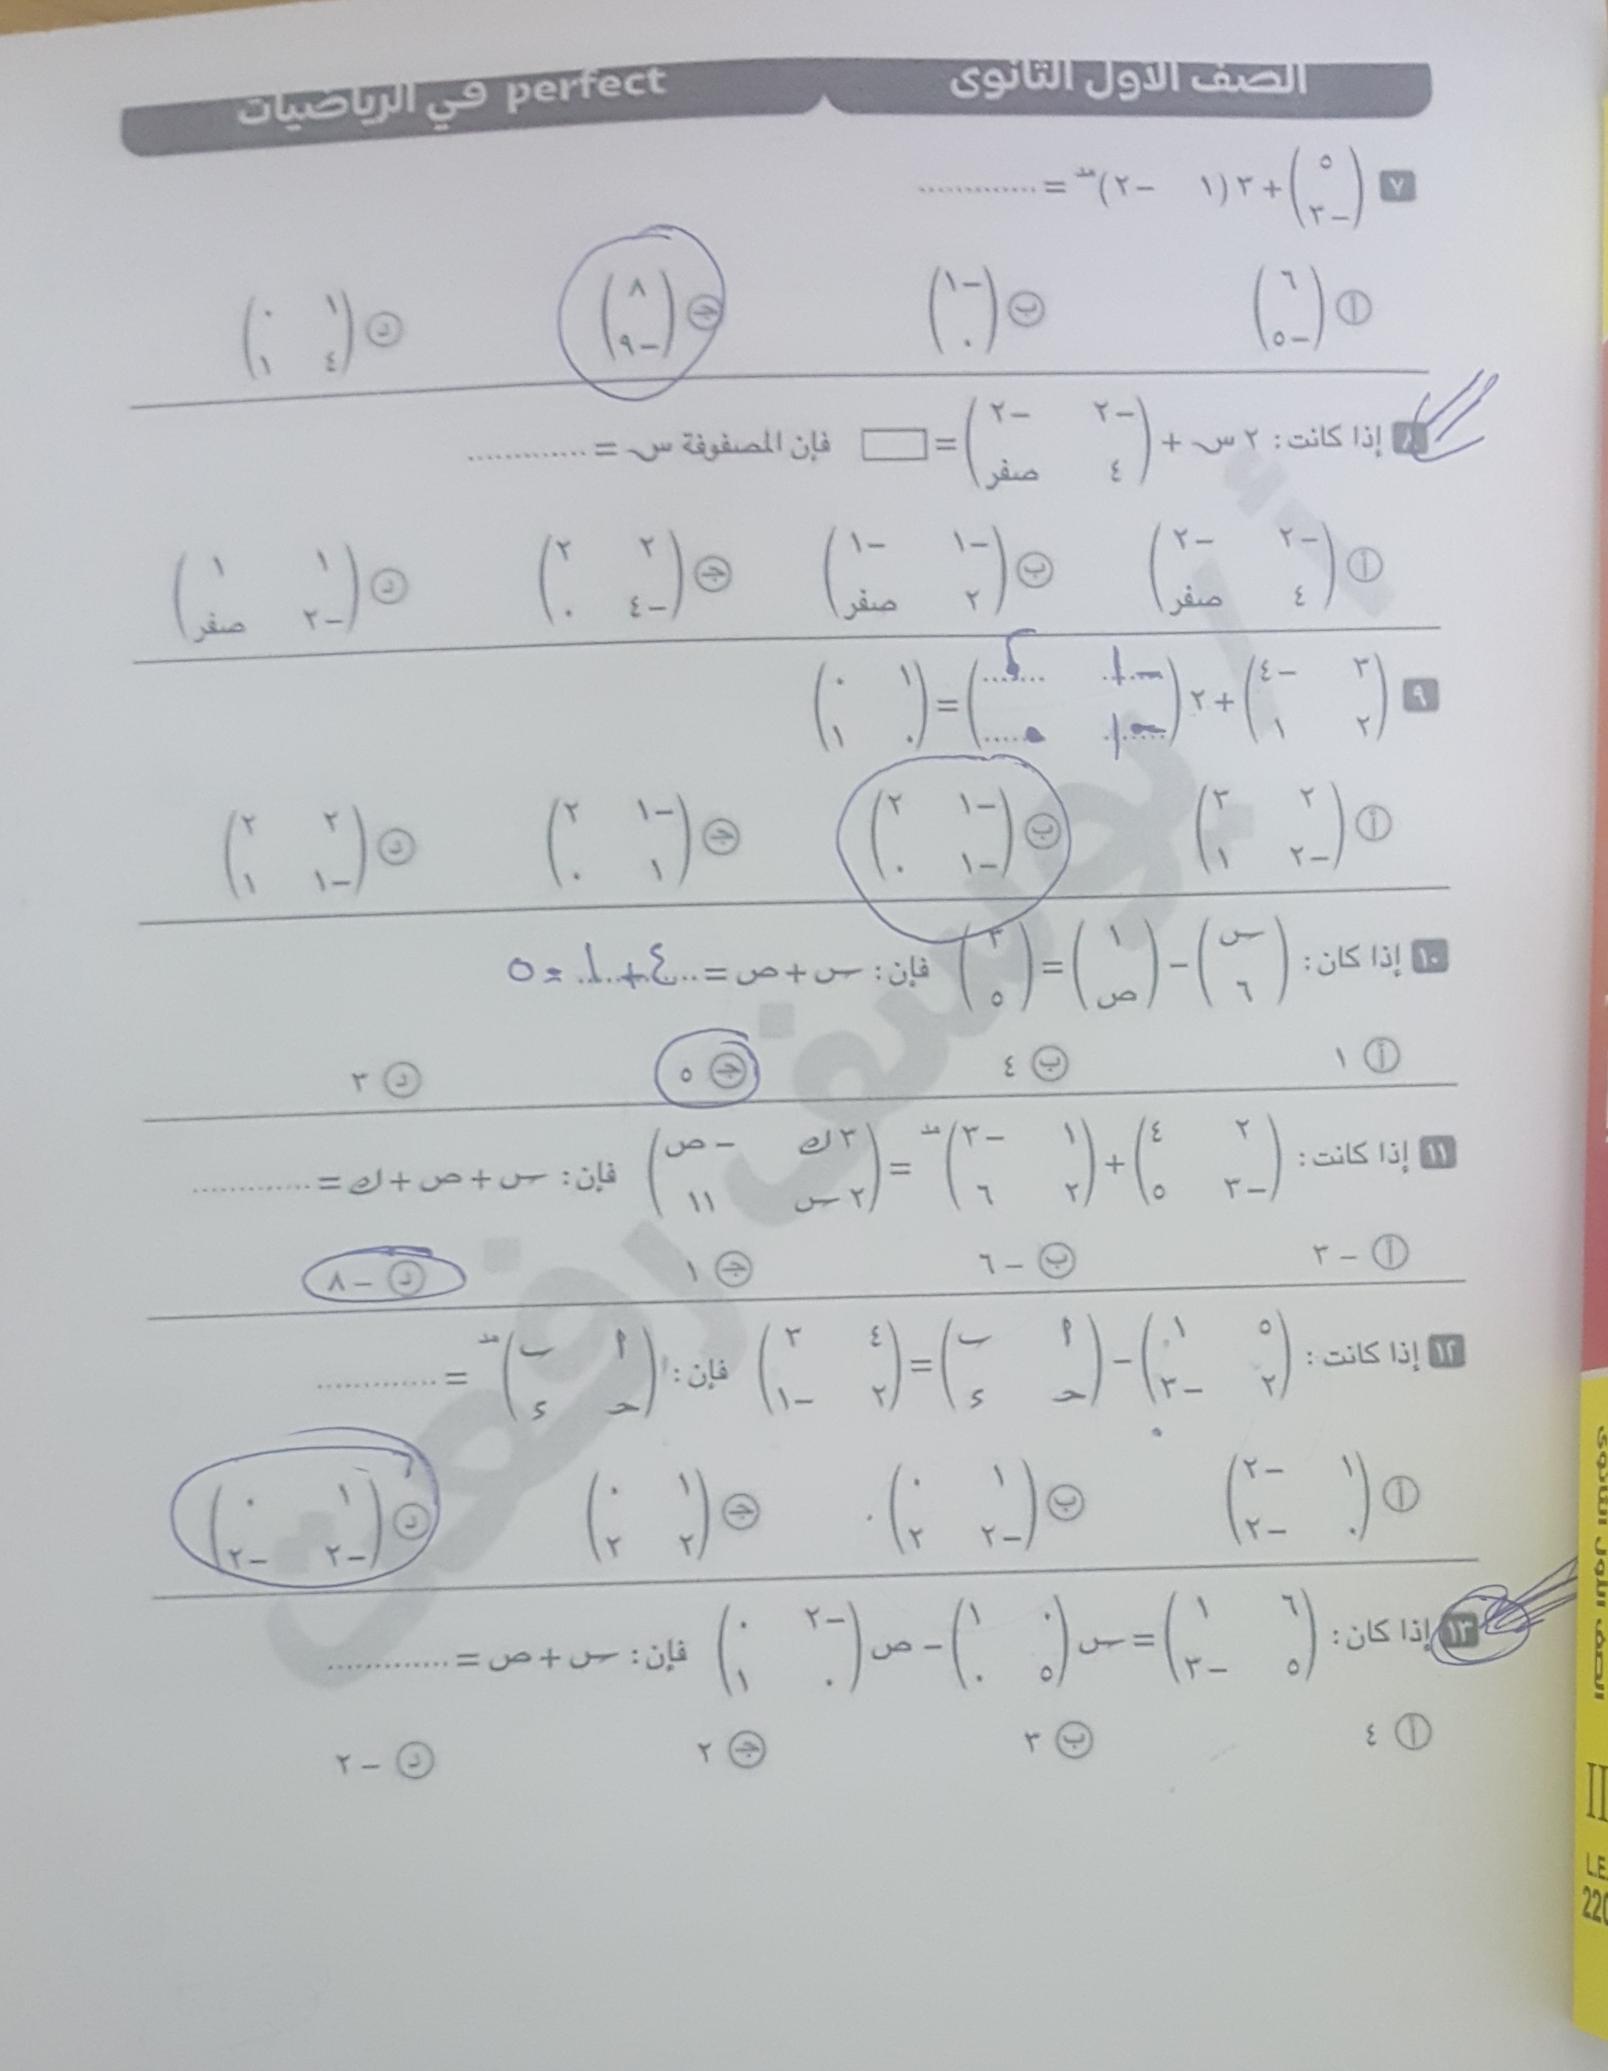 الصف الأول الثانوى perfect في الرياضيات
٧ (٥ / -٣) + ٣ (١ -٢)مد = ............
أ (٦ / -٥) ب (-١ / ٠) ج (٨ / -٩) د (١ ٠ / ٤ ١)
٨ إذا كانت: ٢ س + (-٢ -٢ / ٤ صفر) = □ فإن المصفوفة س = ............
أ (-٢ -٢ / ٤ صفر) ب (-١ -١ / ٢ صفر) ج (٢ ٢ / -٤ ٠) د (١ ١ / -٢ صفر)
٩ (٣ -٤ / ٢ ١) + ٢ (-١ ٢ / -١ ٠) = (١ ٠ / ٠ ١)
أ (٢ ٣ / -٢ ١) ب (-١ ٢ / -١ ٠) ج (-١ ٢ / ١ ٠) د (٢ ٢ / -١ ١)
١٠ إذا كان: (س / ٦) - (١ / ص) = (٣ / ٥) فإن: س + ص = ٤ + ١ = ٥
أ ١ ب ٤ ج ٥ د ٣
١١ إذا كانت: (٢ ٤ / -٣ ٥) + (١ -٣ / ٢ ٦)مد = (٣ ك -ص / ٢ س ١١) فإن: س + ص + ك = ............
أ -٣ ب -٦ ج ١ د -٨
١٢ إذا كانت: (٥ ١ / ٢ -٣) - (أ ب / حـ ء) = (٤ ٣ / ٢ -١) فإن: (أ ب / حـ ء)مد = ............
أ (١ -٢ / ٠ -٢) ب (١ ٠ / -٢ ٢) ج (١ ٠ / ٢ ٢) د (١ ٠ / -٢ -٢)
١٣ إذا كان: (٦ ١ / ٥ -٣) = س (٠ ١ / ٥ ٠) - ص (-٢ ٠ / ٠ ١) فإن: س + ص = ............
أ ٤ ب ٣ ج ٢ د -٢
LE
220